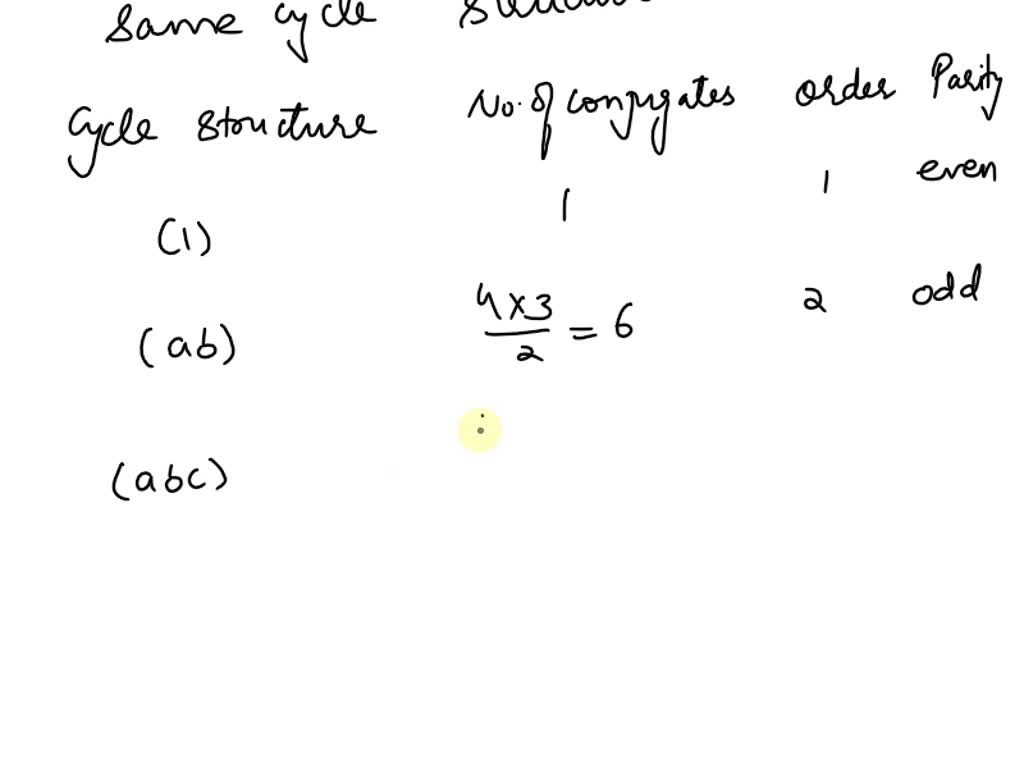 Same cycle
Cycle structure No. of conjugates order Parity
(1) 1 1 even
(ab) 4 × 3 / 2 = 6 2 odd
(abc)